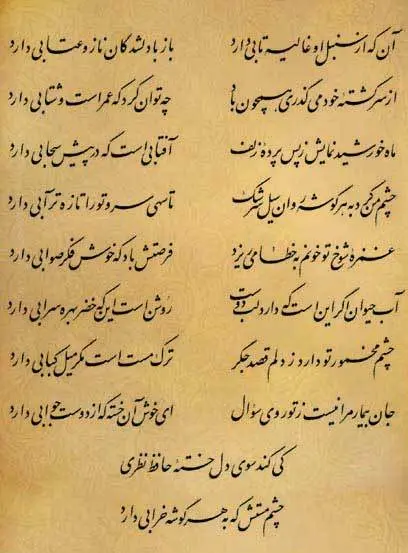 آن که از سنبل او غالیه تابی دارد باز با دلشدگان ناز و عتابی دارد
از سر کشتهٔ خود می گذری همچون باد چه توان کرد که عمر است و شتابی دارد
ماه خورشید نمایش ز پس پردهٔ زلف آفتابی است که در پیش سحابی دارد
چشم من کرد به هر گوشه روان سیل سرشک تا سهی سرو تو را تازه تر آبی دارد
غمزهٔ شوخ تو خونم به خطا می ریزد فرصتش باد که خوش فکر صوابی دارد
آب حیوان اگر این است که دارد لب دوست روشن است این که خضر بهره سرابی دارد
چشم مخمور تو دارد ز دلم قصد جگر ترک مست است مگر میل کبابی دارد
جان بیمار مرا نیست ز تو روی سؤال ای خوش آن خسته که از دوست جوابی دارد
کی کند سوی دل خستهٔ حافظ نظری
چشم مستش که به هر گوشه خرابی دارد